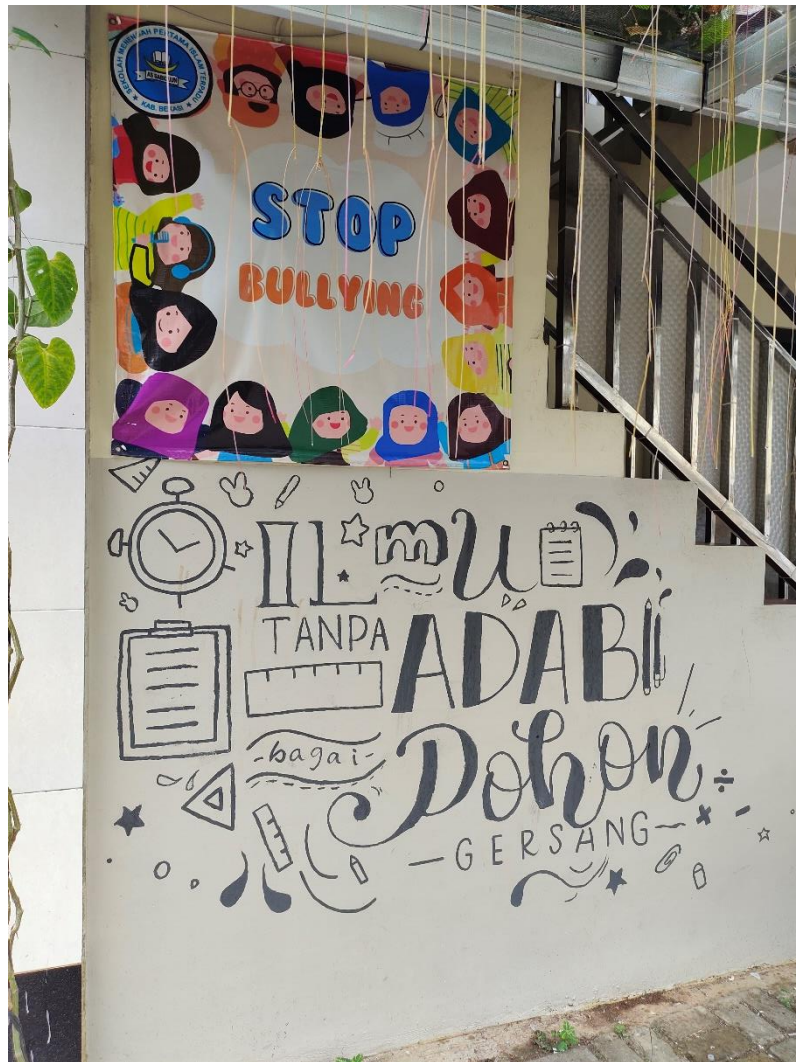 SEKOLAH MENENGAH PERTAMA ISLAM TERPADU
KAB. BEKASI
STOP
BULLYING
ILmU
TANPA ADAB
-bagai- Pohon
-GERSANG-